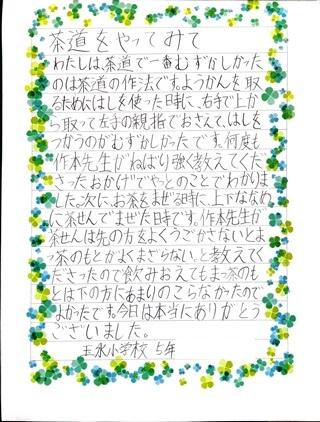 茶道をやってみて
わたしは、茶道で一番むずかしかった
のは茶道の作法です。ようかんを取
るためにはしを使った時に、右手で上か
ら取って左手の親指でおさえて、はしを
つかうのがむずかしかったです。何度も
作本先生がねばり強く教えてくだ
さったおかげでやっとのことでわかりま
した。次に、お茶をまぜる時に、上下ななめ
に茶せんでまぜた時です。作本先生が
茶せんは先の方をよくうごかさないとま
っ茶のもとがよくまざらない。と教えてく
ださったので飲みおえてもまっ茶のも
とは下の方にあまりのこらなかったので
よかったです。今日は本当にありがとう
ございました。
玉水小学校 5年